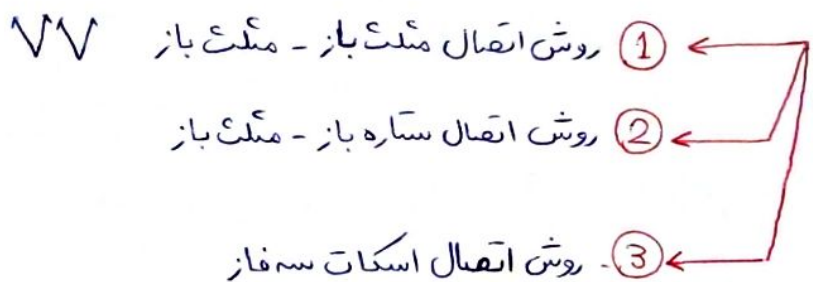 ① روش اتصال مثلث باز - مثلث باز VV
② روش اتصال ستاره باز - مثلث باز
③ روش اتصال اسکات سه فاز